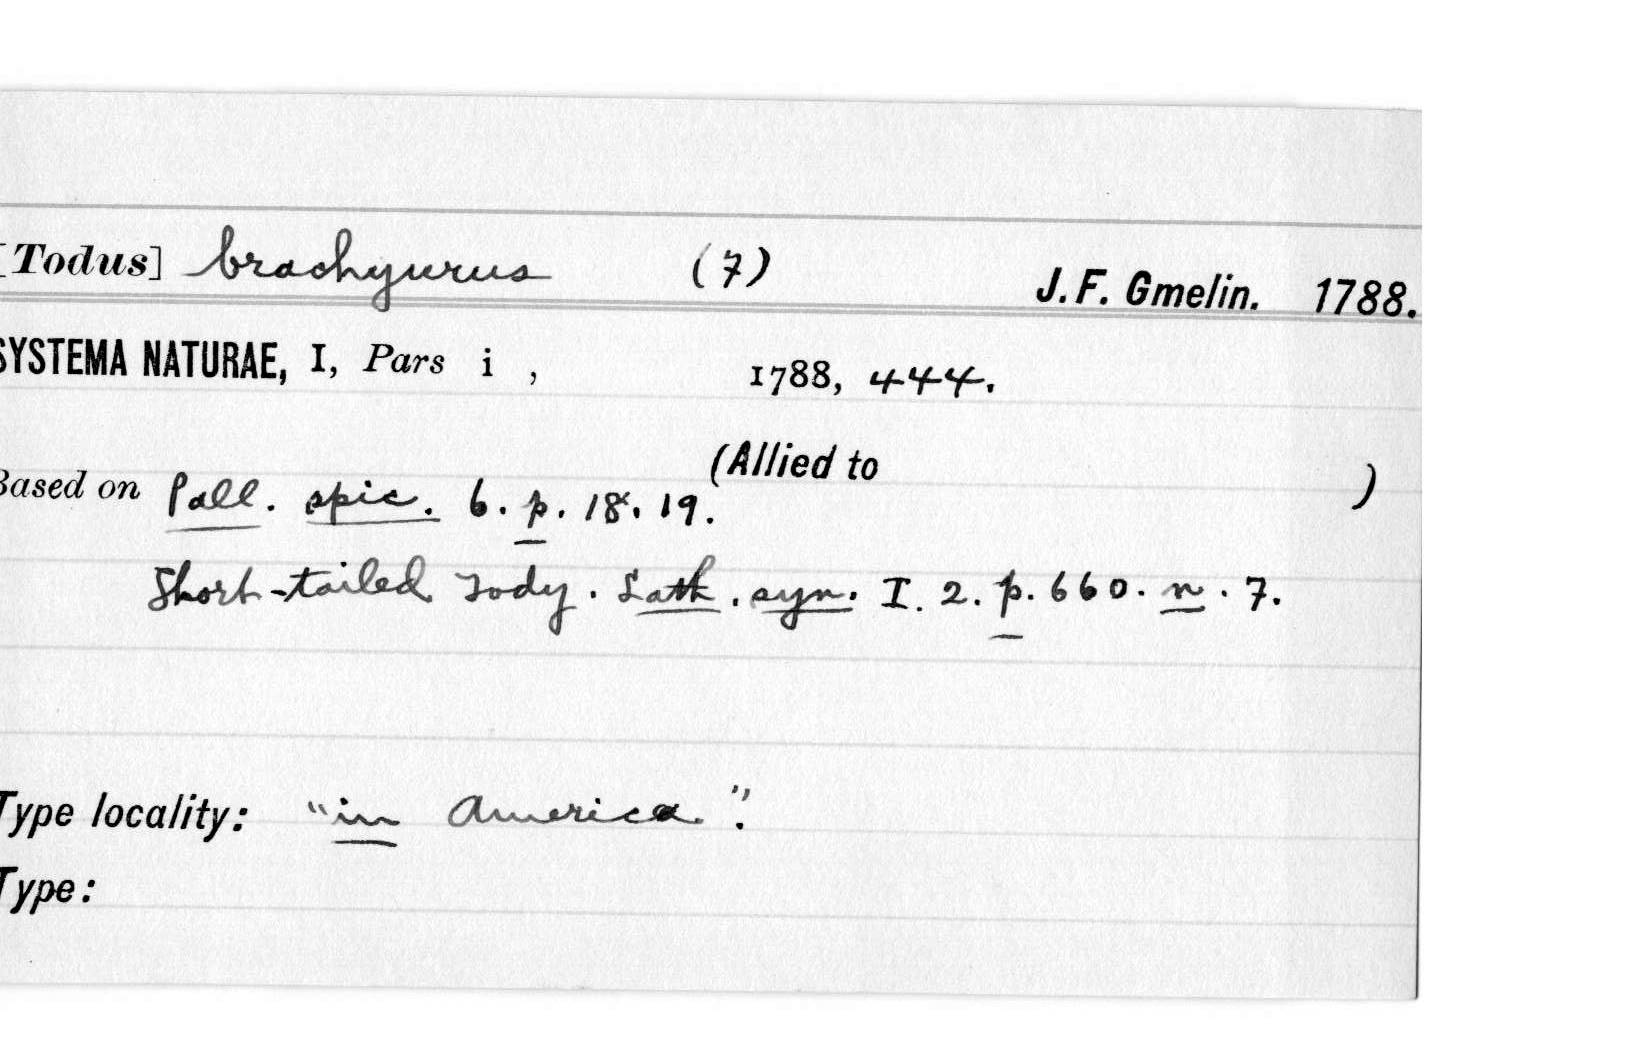 [Todus] brachyurus (7) J. F. Gmelin. 1788.
SYSTEMA NATURAE, I, Pars i , 1788, 444.
(Allied to )
Based on Pall. spic. 6. p. 18. 19.
Short-tailed Tody. Lath. syn. I. 2. p. 660. n. 7.
Type locality: "in America".
Type: